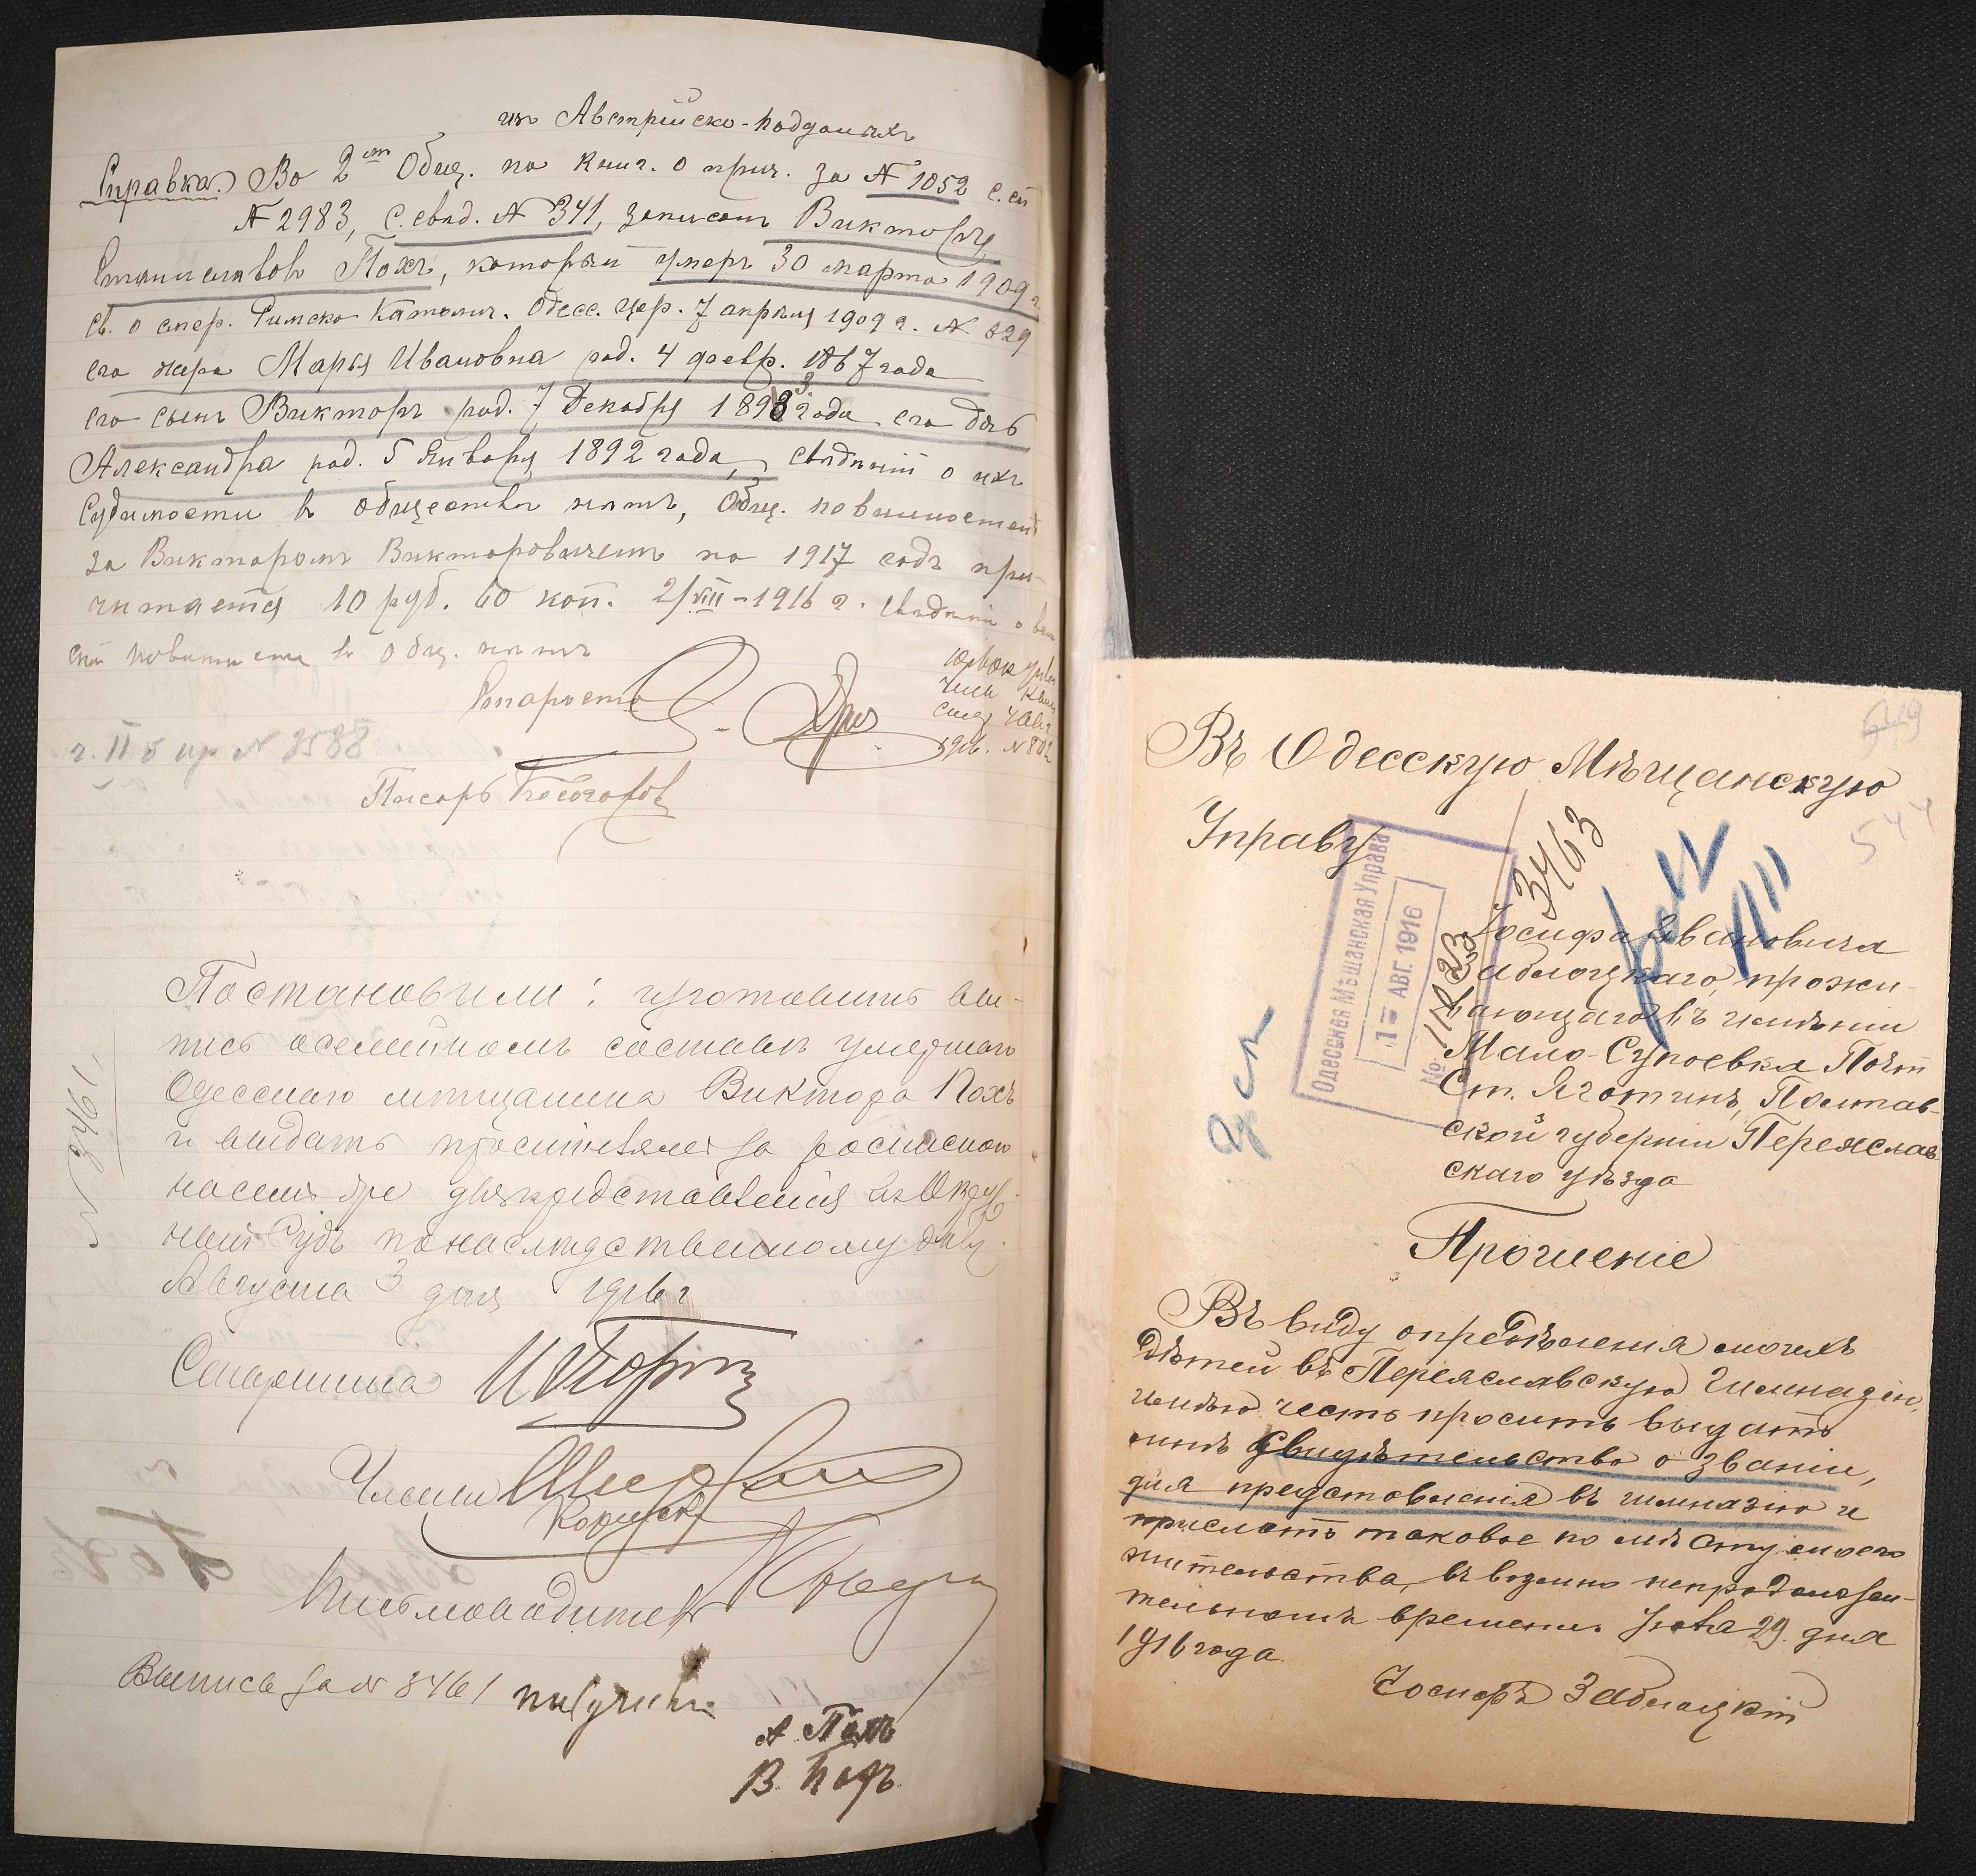 изъ Австрійско-подданыхъ
Справка. Во 2ом Общ. по книг. о прич. за № 1052 с. сп
№ 2983, с. свид. № 341, записан Викторъ
Станиславов Похъ, который умеръ 30 марта 1909 г.
св. о смер. Римско Католич. Одесс. цер. 7 апрѣля 1909 г. № 329
его жена Марья Ивановна род. 4 февр. 1867 года
его сынъ Викторъ род. 7 Декабря 1893 года его дочь
Александра род. 5 Января 1892 года, свѣдѣній о ихъ
судимости в обществѣ нѣтъ, Общ. повинностей
за Викторомъ Викторовичемъ по 1917 годъ при-
читается 10 руб. 60 коп. 2/VIII-1916 г. свѣдѣній о воин
ской повинности въ Общ. нѣтъ
Староста
г. II б пр № 3588
1916. № 802
Писарь
Постановили: изготовить вы-
пись о семейномъ составѣ умершаго
Одесскаго мѣщанина Виктора Похъ
и выдать просителямъ за роспискою
на семъ же для представленія въ Окруж-
ный Судъ по наслѣдственному дѣлу.
Августа 3 дня 1916 г
№ 3461
Старшина
Члены
Письмоводитель
Выпись за № 3461 получили
А. Похъ
В. Похъ
549
544
Въ Одесскую Мѣщанскую
Управу
3463
Одесская Мѣщанская Управа
1 АВГ. 1916
№ 11823
Іосифа Ивановича
Заблоцкаго, прожи-
вающаго въ имѣніи
Мало-Супоевка Почт
Ст. Яготинъ, Полтав-
ской губерніи Переяслав-
скаго уѣзда
Прошеніе
Въ виду опредѣленія моихъ
дѣтей въ Переяславскую Гимназію,
имѣю честь просить выдать
мнѣ Свидѣтельство о званіи,
для предстовленія въ гимназію и
прислать таковое по мѣсту моего
жительства, въ возможно непродолжи-
тельномъ времени. Іюля 29 дня
1916 года.
Іосифъ Заблоцкій